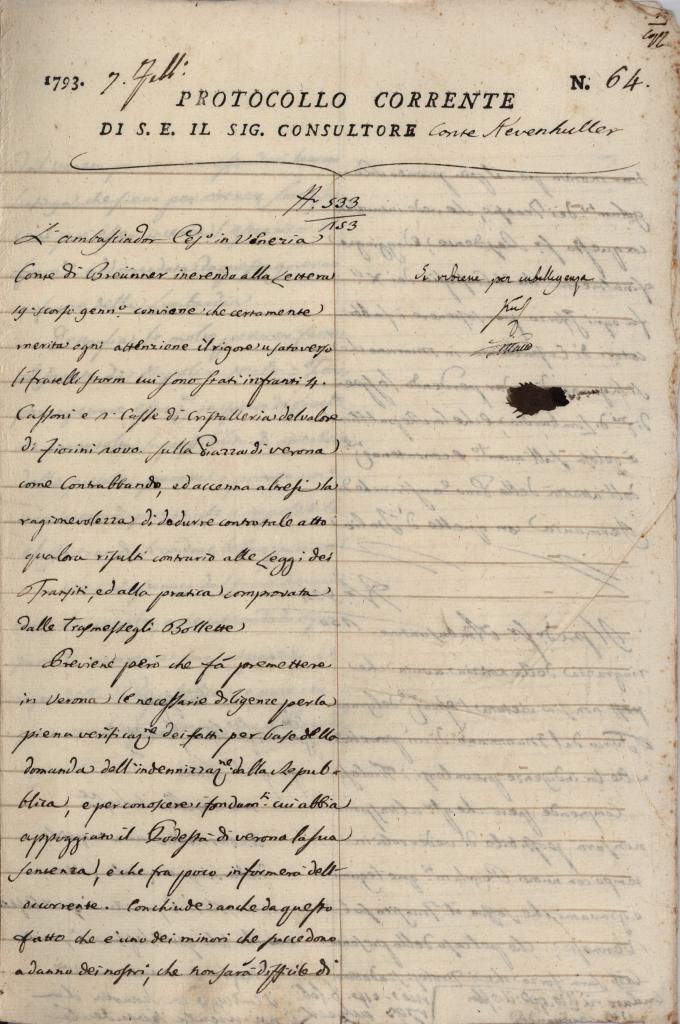 1793. 7. Febb:
N. 64.
PROTOCOLLO CORRENTE
DI S. E. IL SIG. CONSULTORE Conte Kevenhuller
N.º 533
153
L'ambasciador Ces.º in Venezia
Conte di Breünner inerendo alla Lettera
19. scorso genn.º conviene che certamente
merita ogni attenzione il rigore usato verso
li fratelli Storm cui sono stati infranti 4.
Cassoni e Casse di Cristalleria del valore
di fiorini novo. sulla Piazza di Verona
come Contrabbando, ed accenna altresì la
ragionevolezza di dedurre contro tale atto
qualora risulti contrario alle Leggi dei
Transiti, ed alla pratica comprovata
dalle trasmessegli Bollette
Previene però che fà premettere
in Verona le necessarie diligenze per la
piena verificaz.ne dei fatti per base della
domanda dell'indennizzaz.ne dalla Repub-
blica, e per conoscere i fondam.ti cui abbia
appoggiato il Podestà di Verona la sua
sentenza, e che fra poco informerà dell'
occorrente. Conchiude anche da questo
fatto che è uno dei minori che succedono
a danno dei nostri, che non sarà difficile di
Si ritiene per intelligenza